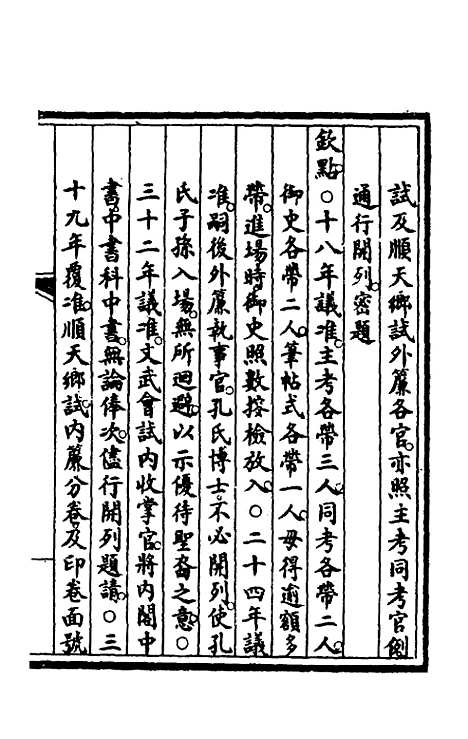 試及順天鄉試外簾各官亦照主考同考官例
通行開列密題
欽點○十八年議准主考各帶三人同考各帶二人
御史各帶二人筆帖式各帶一人毋得逾額多
帶進場時御史照數搜檢放入○二十四年議
准嗣後外簾執事官孔氏博士不必開列使孔
氏子孫入場無所迴避以示優待聖裔之意○
三十二年議准文武會試內收掌官將內閣中
書中書科中書無論俸次儘行開列題請○三
十九年覆准順天鄉試內簾分卷及印卷面號